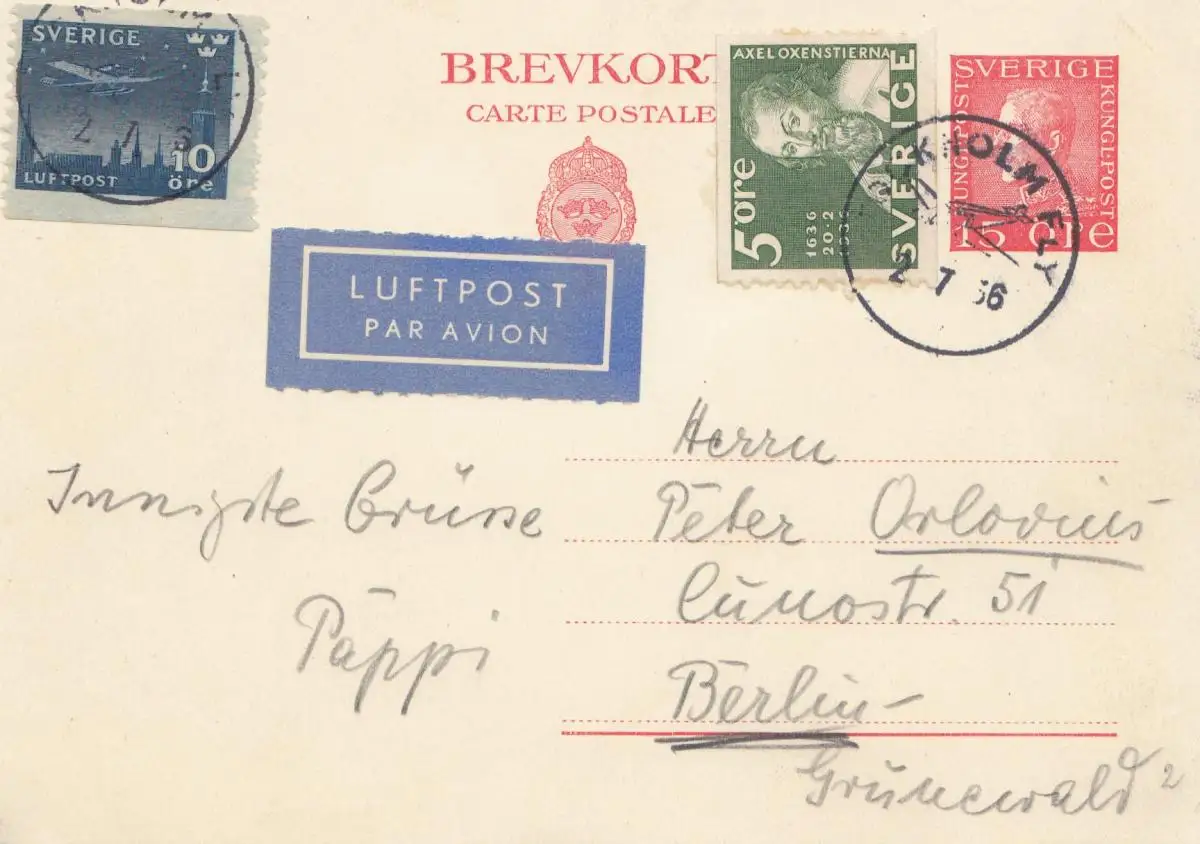 SVERIGE
10
öre
LUFTPOST
2 7 6
BREVKORT
CARTE POSTALE
AXEL OXENSTIERNA
5 öre
1636
20.2
1936
SVERIGE
SVERIGE
KUNGL.POST
15 öre
KHOLM FLY
2 7 36
LUFTPOST
PAR AVION
Innigste Grüsse
Pappi
Herrn
Peter Orlovius
Cunostr. 51
Berlin-
Grunewald 2